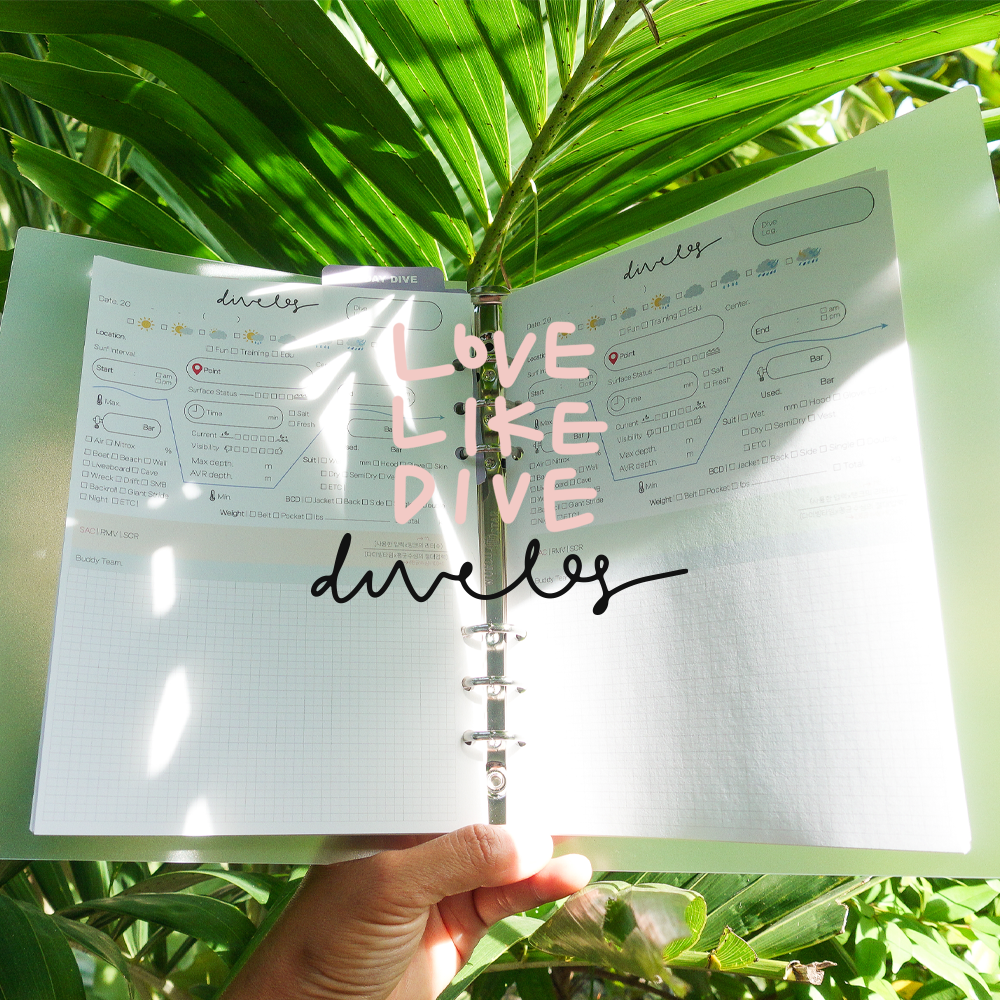 DAY DIVE
divelog
Date. 20
Location.
Fun Training Edu
Surf' Interval
Start am pm
Point
Surface Status
Max.
Time min
Salt
Fresh
Bar
Bar
Current
Visibility
Air Nitrox %
Boat Beach Wall
Liveaboard Cave
Wreck Drift SMB
Backroll Giant Stride
Night ETC
Max depth. m
AVR depth. m
Min
Suit Wet mm Hood Glove Skin
Dry SemiDry Vest
ETC
BCD Jacket Back Side
Weight Belt Pocket lbs Total
SAC RMV SCR
Buddy Team.
divelog
Dive Log.
Date. 20
Fun Training Edu
Center.
Location
Point
End am pm
Surface Status
Time min
Salt
Fresh
Bar
Used. Bar
Max.
Current
Visibility
Max depth. m
AVR depth. m
Suit Wet mm Hood
Dry SemiDry Vest
ETC
Min
BCD Jacket Back Side Single
Weight Belt Pocket lbs Total
SAC RMV SCR
Buddy Team.
LOVE
LIKE
DIVE
divelog